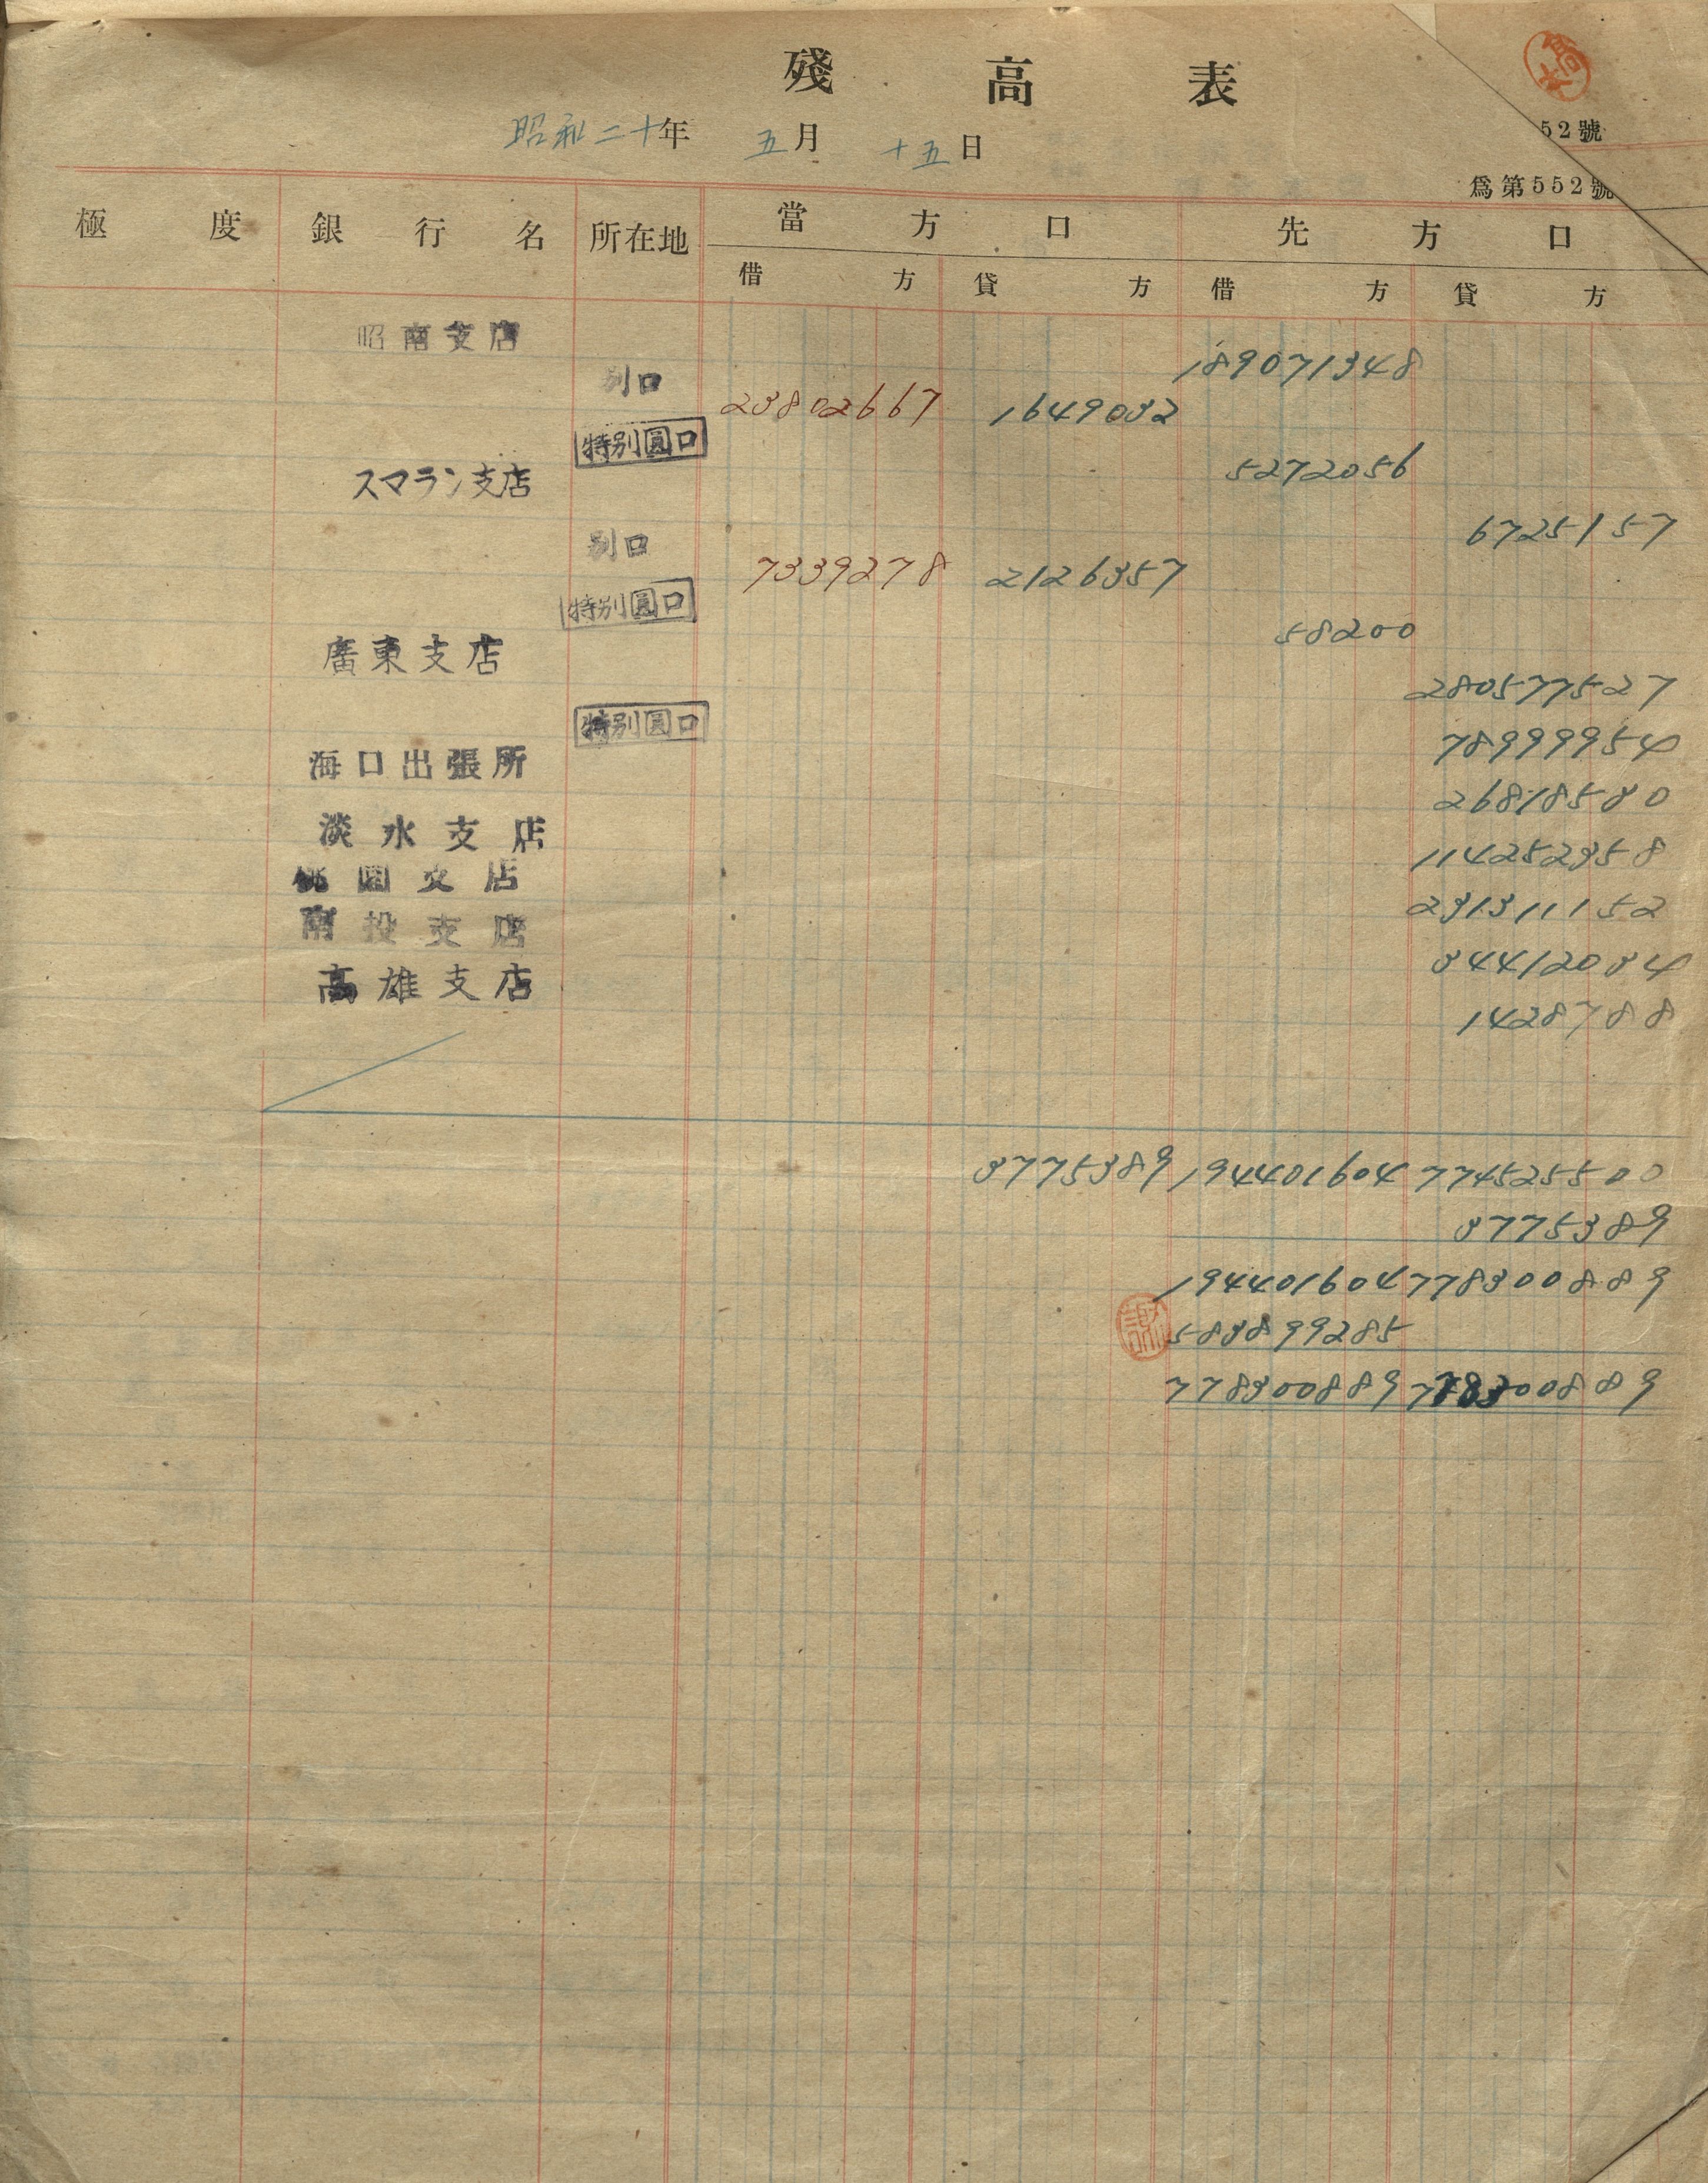 殘高表
昭和二十年 五月 十五日
52號
爲第552號
極度 銀行名 所在地 當方口 先方口
借方 貸方 借方 貸方
昭南支店 189071348
別口 23802667 1649032
特別圓口 5272056
スマラン支店 6725157
別口 7339278 2126357
特別圓口 58200
廣東支店 280577527
特別圓口 78999954
海口出張所 26818530
淡水支店 114252358
桃園支店 231311152
南投支店 34412034
高雄支店 1428788
3775389 194401604 774525500
3775389
194401604 778300889
583899285
778300889 778300889